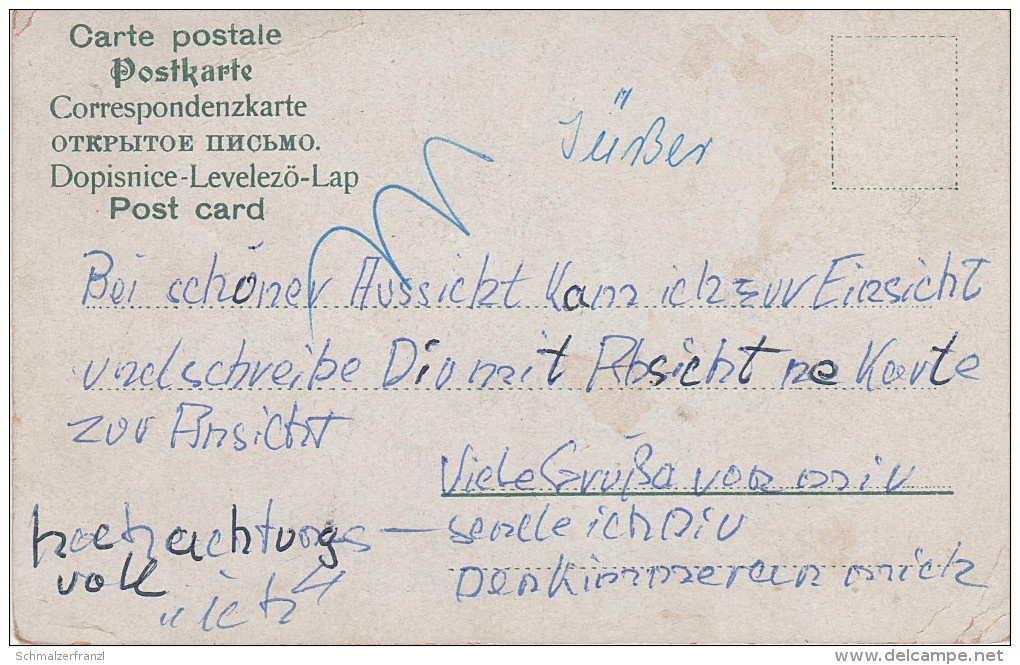 Carte postale
Postkarte
Correspondenzkarte
ОТКРЫТОЕ ПИСЬМО.
Dopisnice-Levelezö-Lap
Post card
Bei schöner Aussicht kam ich zur Einsicht
und schreibe Dir mit Absicht ne Karte
zur Ansicht
Viele Grüße von mir
hochachtungs – sende ich Dir
voll
Denk immer an mich
„ich“
Schmalzerfranzl
delcampe.net